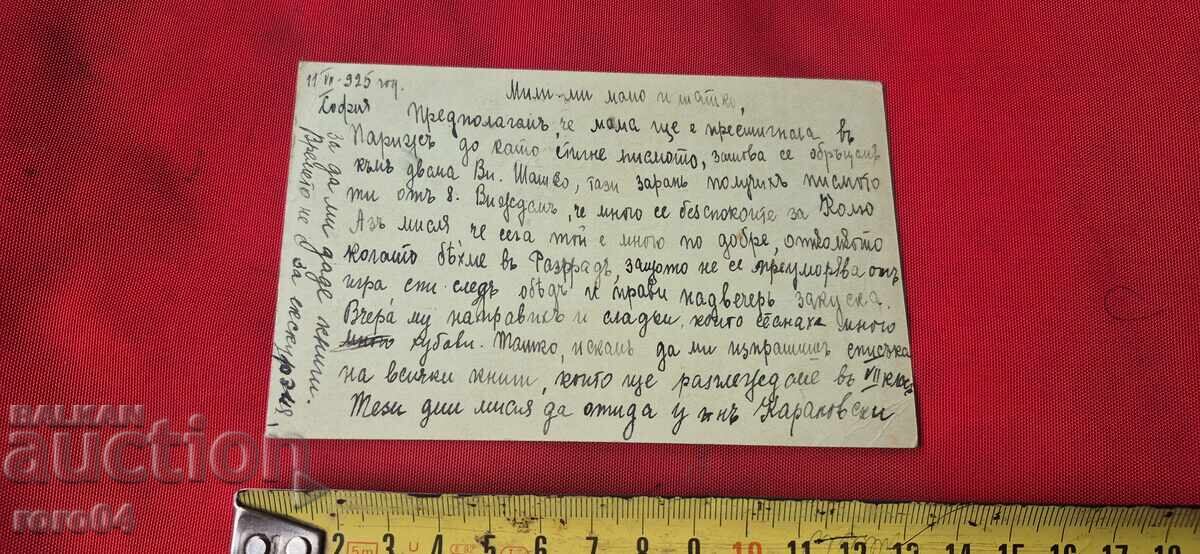 11/VII - 925 год.
София
Мили ми мамо и татко,
Предполагамъ, че мама ще е пристигнала въ
Парижъ до като стигне писмото, затова се обръщамъ
къмъ двама Ви. Татко, тази зарань получихъ писмото
ти отъ 8. Виждамъ, че много се безспокоите за Колю
Азъ мисля че сега той е много по добре, отколкото
когато бѣхме въ Разградъ, защото не се преуморява отъ
игра спи следъ обѣдъ и прави надвечерь закуска.
Вчера му направихъ и сладки, които станаха много
хубави. Татко, искамъ да ми изпратишъ списъка
на всички книги, които ще разглеждаме въ VII класъ
Тези дни мисля да отида у г-нъ Караковски
за да ми даде книги.
Времето не е за екскурзия
BALKAN
auction
roro64
2 3 4 5 6 7 8 9 10 11 12 13 14 15 16 17 18
5m